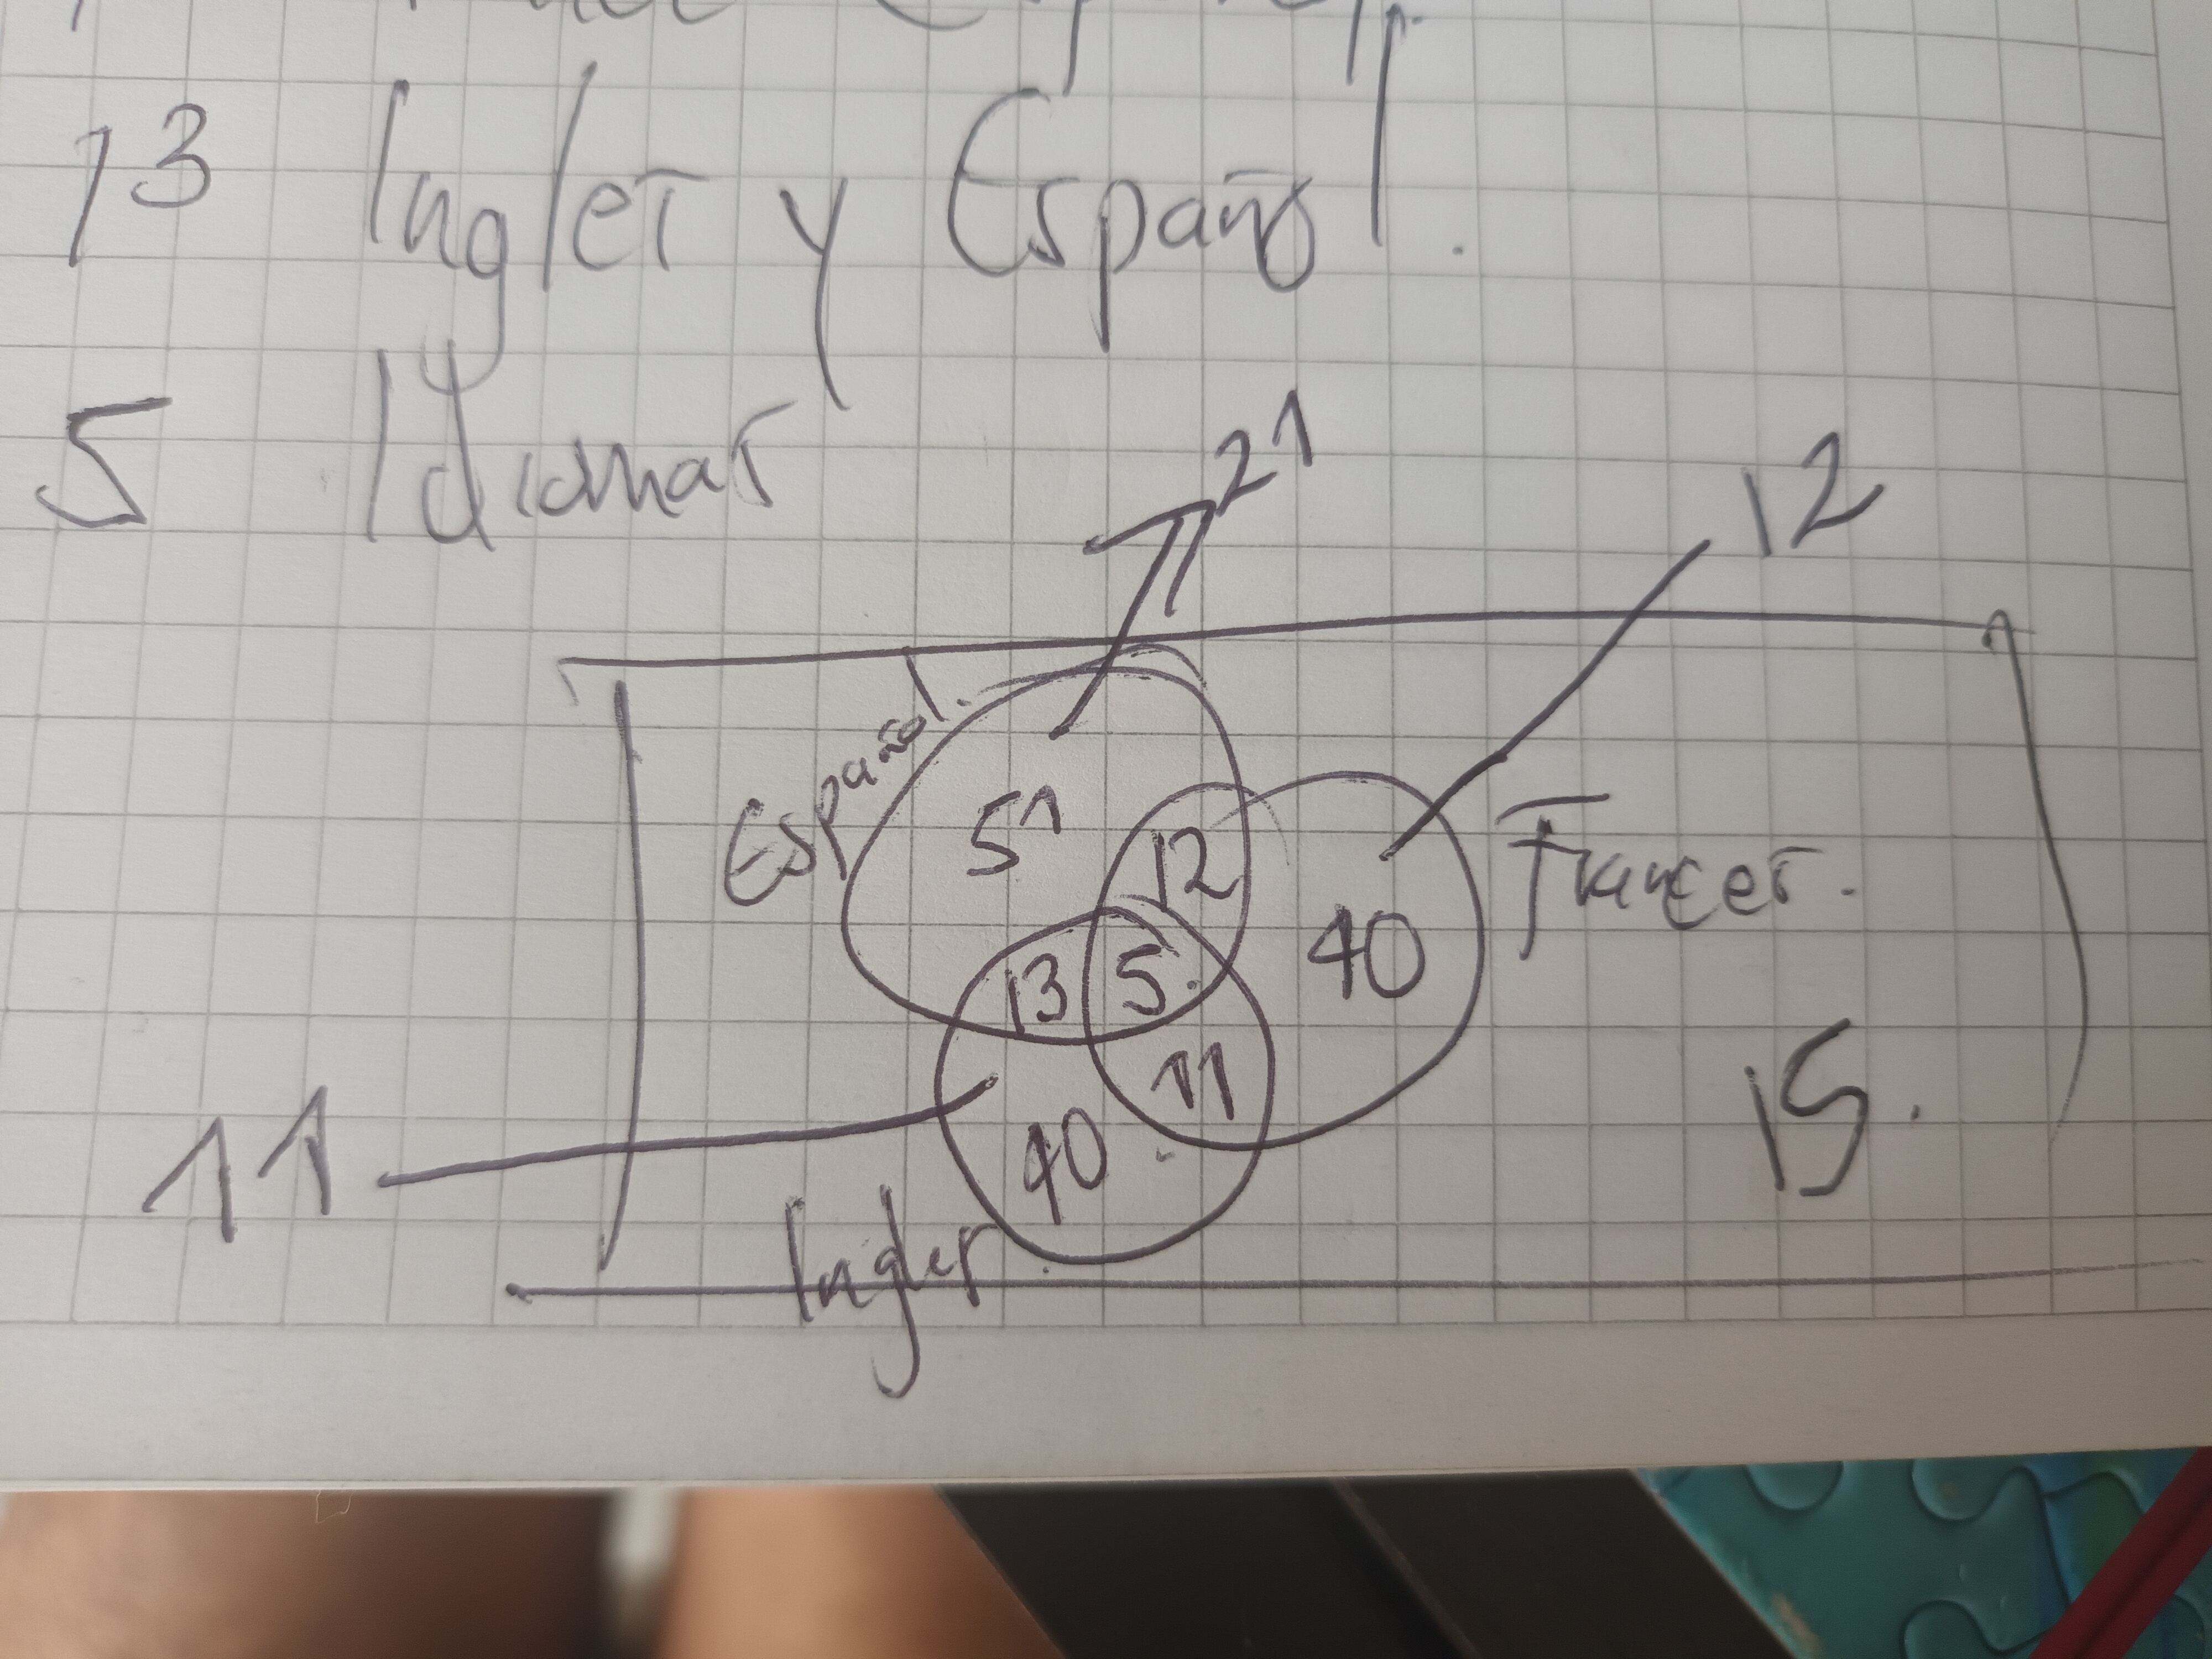 13 Ingles y Español.
5 Idiomas
21
12
Español.
51
12
Frances.
40
13 5.
11
15.
11
40
Ingles.